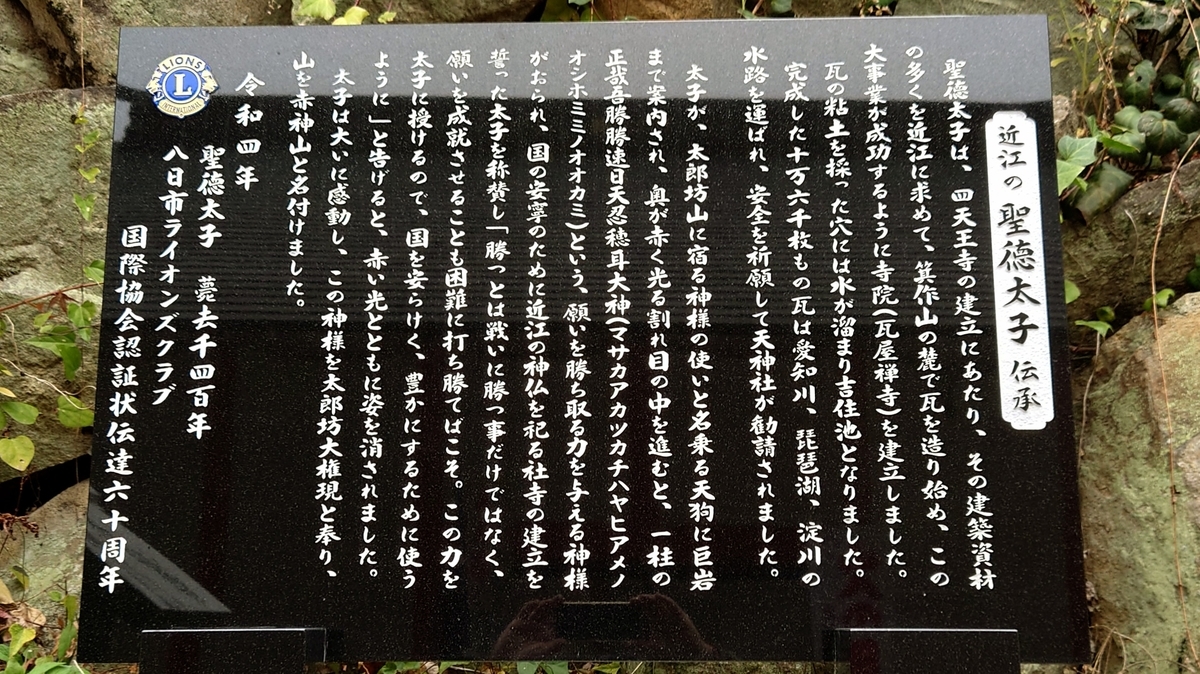 近江の 聖徳太子 伝承
聖徳太子は、四天王寺の建立にあたり、その建築資材
の多くを近江に求めて、箕作山の麓で瓦を造り始め、この
大事業が成功するように寺院(瓦屋禅寺)を建立しました。
瓦の粘土を採った穴には水が溜まり吉住池となりました。
完成した十万六千枚もの瓦は愛知川、琵琶湖、淀川の
水路を運ばれ、安全を祈願して天神社が勧請されました。
太子が、太郎坊山に宿る神様の使いと名乗る天狗に巨岩
まで案内され、奥が赤く光る割れ目の中を進むと、一柱の
正哉吾勝勝速日天忍穂耳大神(マサカアカツカチハヤヒアメノ
オシホミミノオオカミ)という、願いを勝ち取る力を与える神様
がおられ、国の安寧のために近江の神仏を祀る社寺の建立を
誓った太子を称賛し「勝つとは戦いに勝つ事だけではなく、
願いを成就させることも困難に打ち勝てばこそ。この力を
太子に授けるので、国を安らけく、豊かにするために使う
ように」と告げると、赤い光とともに姿を消されました。
太子は大いに感動し、この神様を太郎坊大権現と奉り、
山を赤神山と名付けました。
令和四年
聖徳太子 薨去千四百年
八日市ライオンズクラブ
国際協会認証状伝達六十周年
LIONS
L
INTERNATIONAL